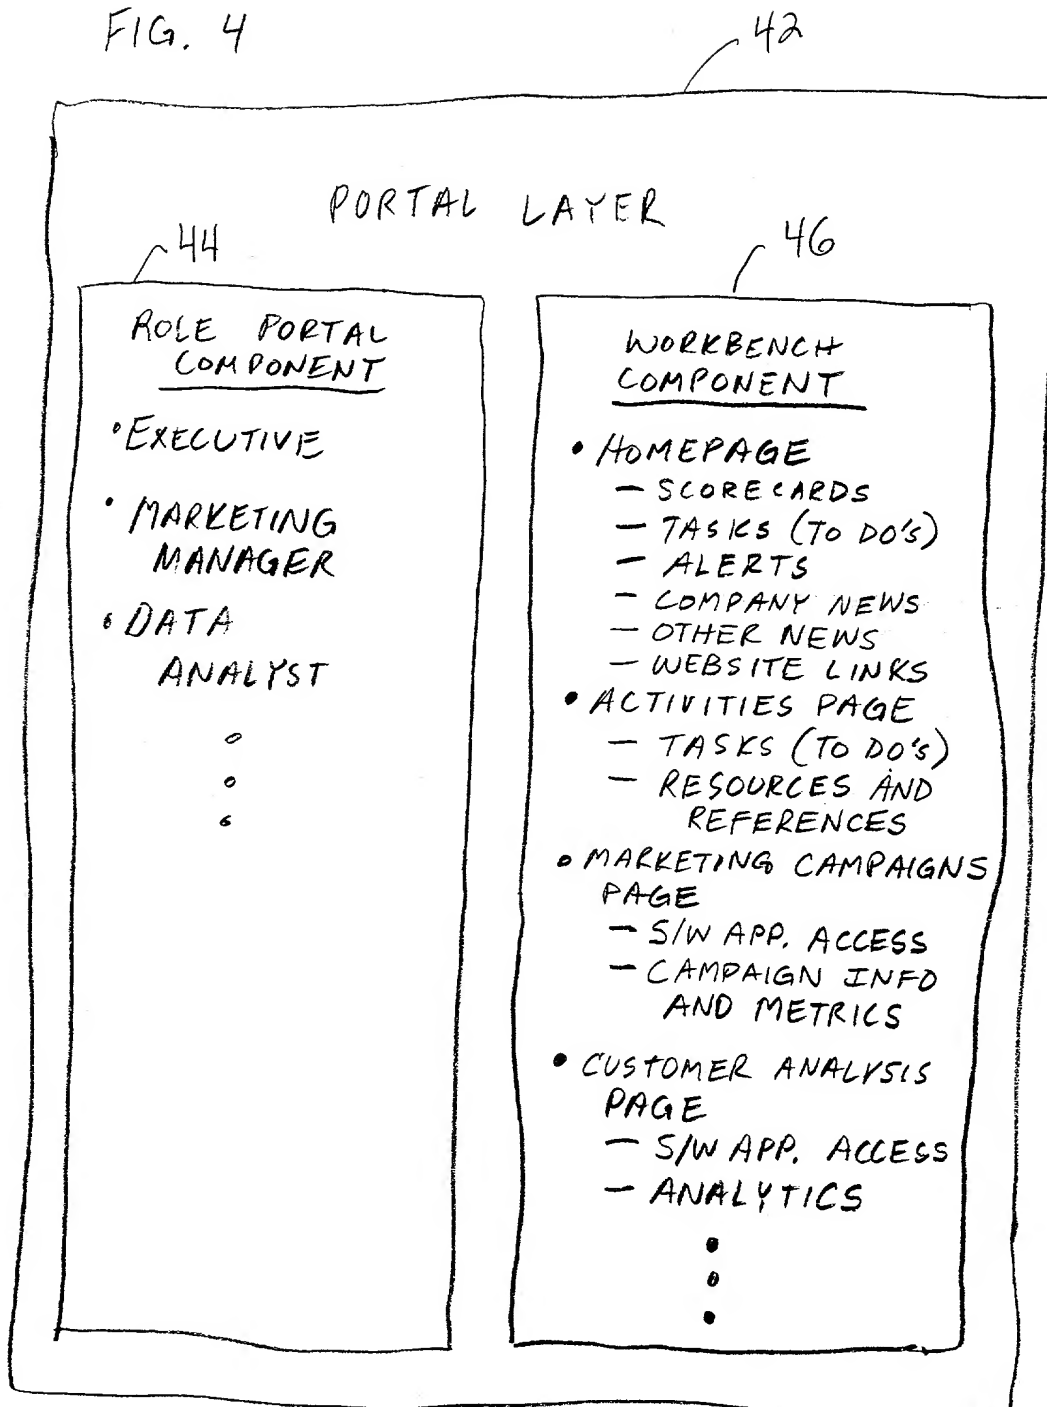 FIG. 4
42
PORTAL LAYER
44
ROLE PORTAL
COMPONENT
• EXECUTIVE
• MARKETING
MANAGER
• DATA
ANALYST
46
WORKBENCH
COMPONENT
• HOMEPAGE
– SCORECARDS
– TASKS (TO DO'S)
– ALERTS
– COMPANY NEWS
– OTHER NEWS
– WEBSITE LINKS
• ACTIVITIES PAGE
– TASKS (TO DO'S)
– RESOURCES AND
REFERENCES
• MARKETING CAMPAIGNS
PAGE
– S/W APP. ACCESS
– CAMPAIGN INFO
AND METRICS
• CUSTOMER ANALYSIS
PAGE
– S/W APP. ACCESS
– ANALYTICS